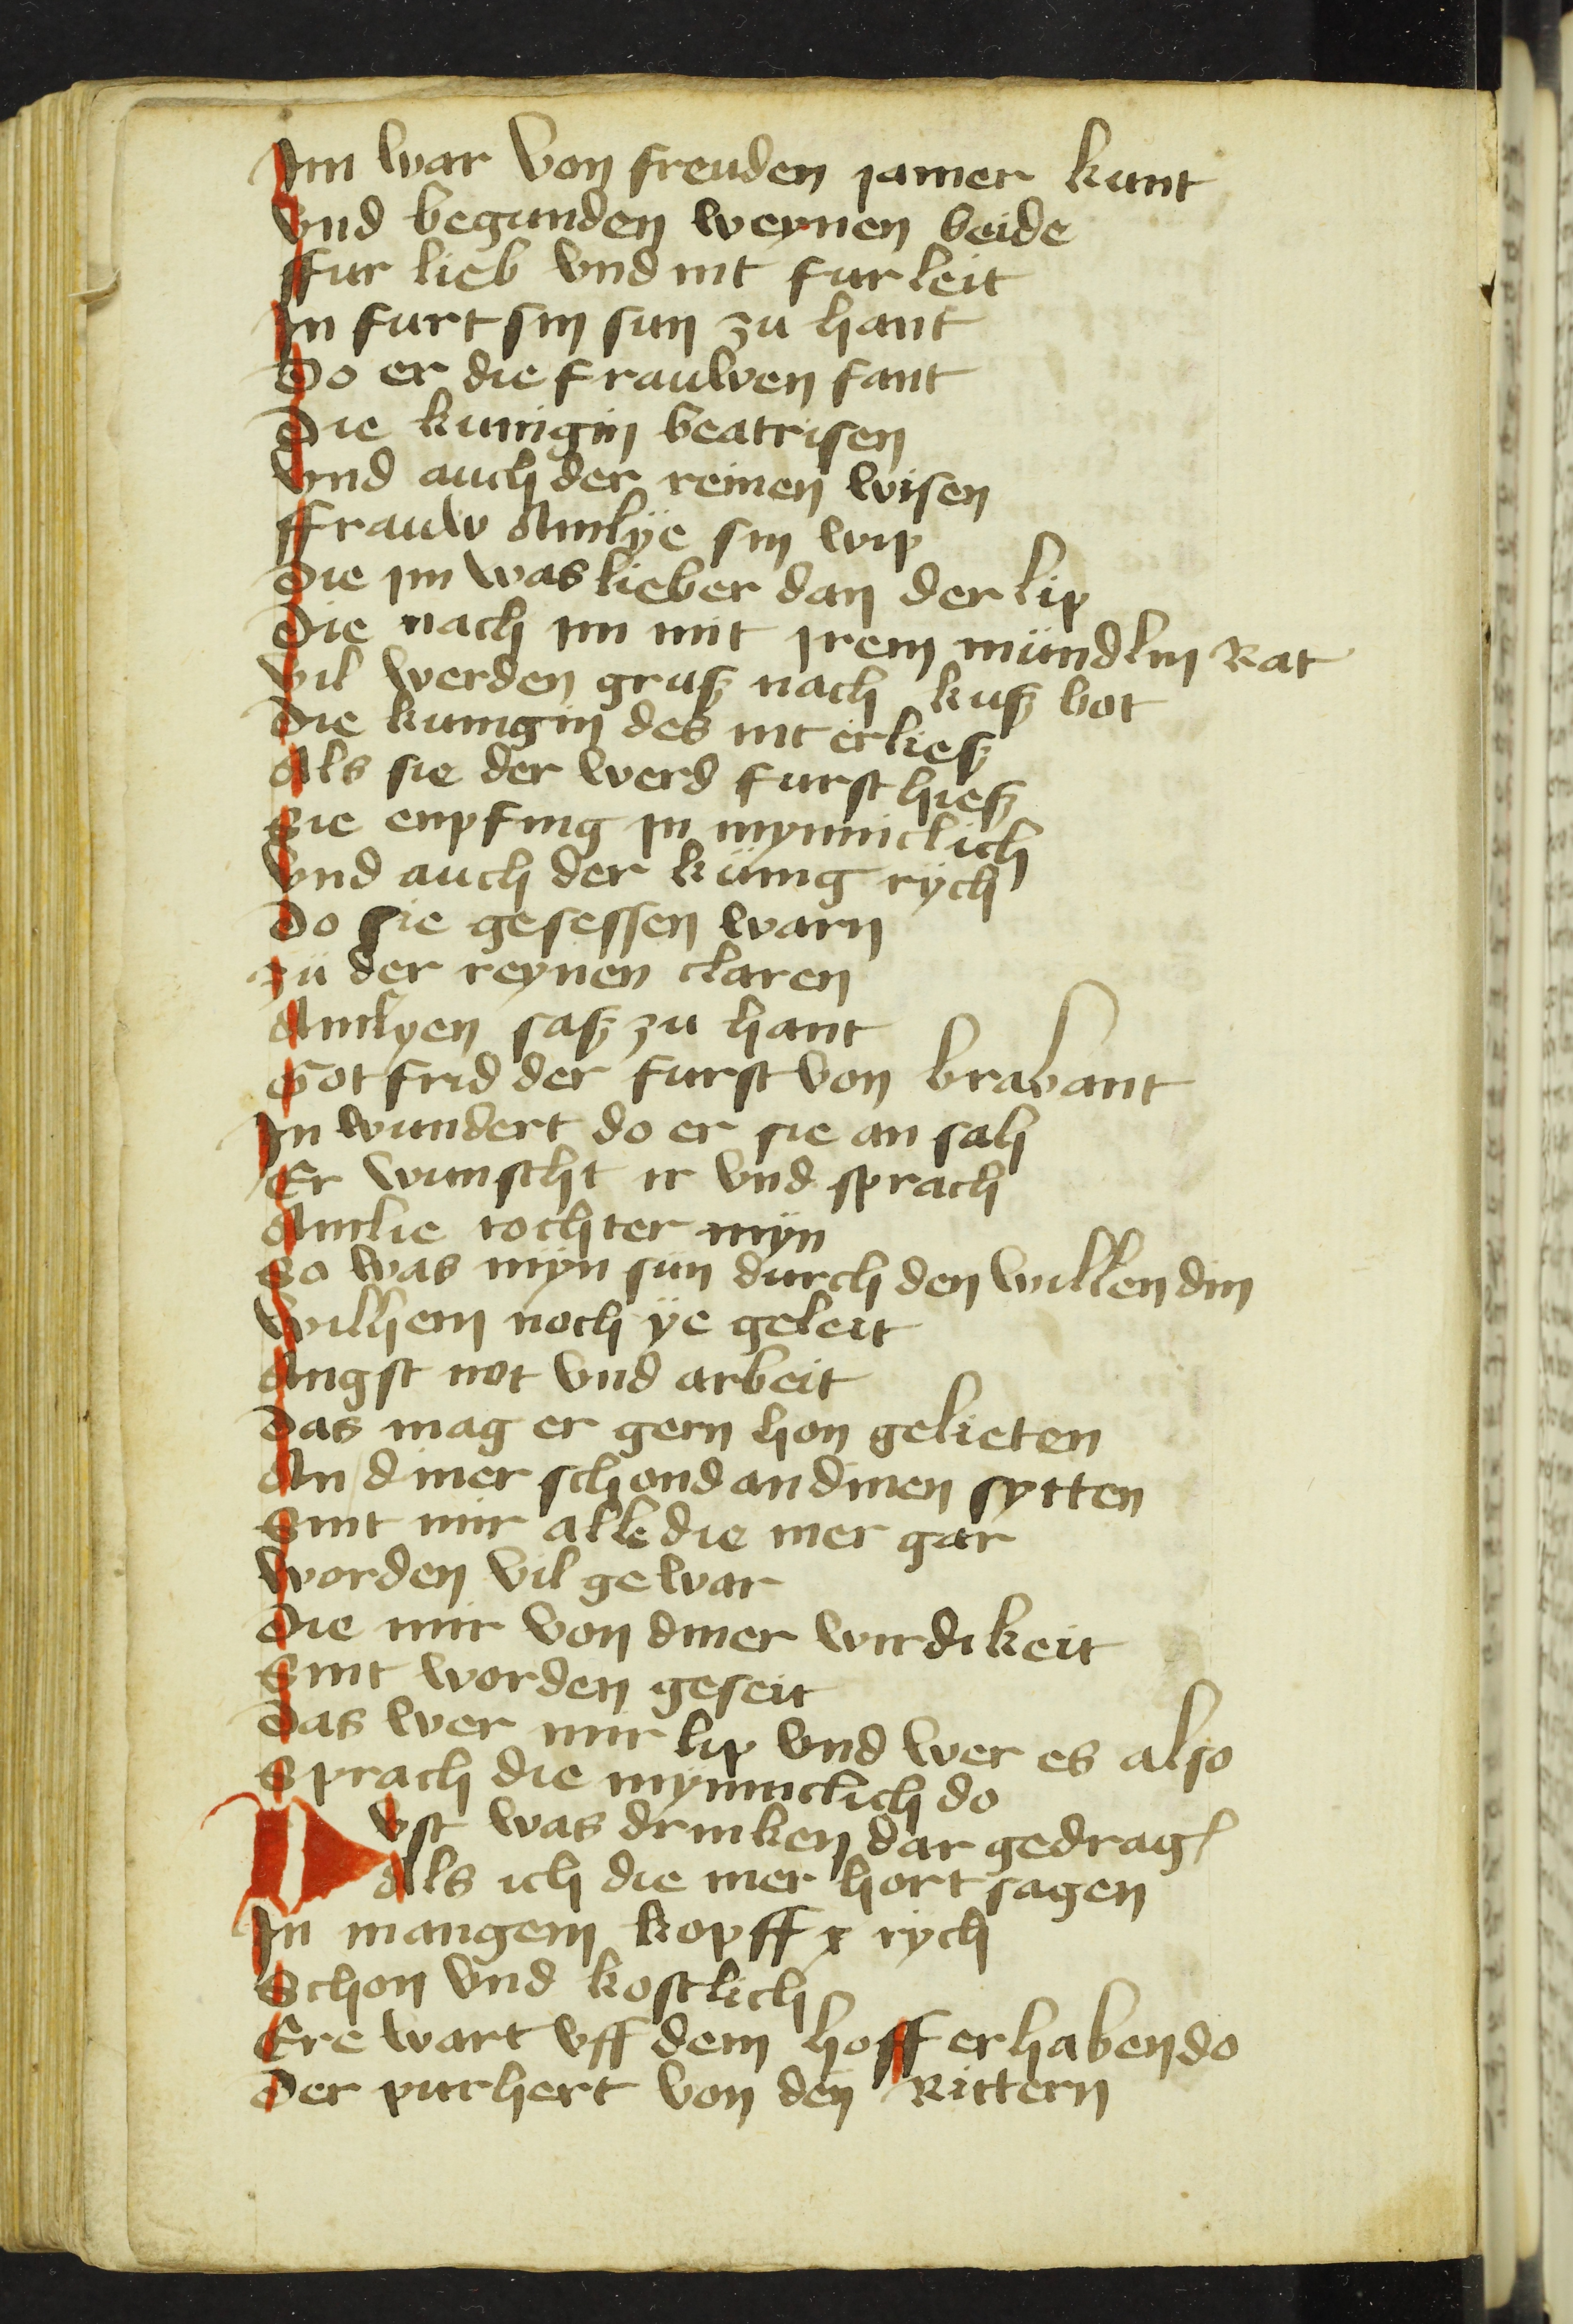 Im war von freuden jamer kunt
Vnd begunden weynen beide
ffur lieb vnd nit fur leit
In furt sin sun zu hant
Do er die frauwen fant
Die kunigin beatrisen
Vnd auch der reinen wisen
ffrauw Amlÿe sin wip
Die im was lieber dan der lip
Die nach im mit irem mündlin Rat
Vil werden grusz nach kusz bot
Die kunigin des nit erliesz
Als sie der werd furst hiesz
Sie enpfing in mynniclich
Vnd auch der künig rÿch
Do sie gesessen warn
Zü der reynen claren
Amlyen sasz zu hant
Gotfrid der furst von brabant
In wundert do er sie an sah
Er wunscht ir vnd sprach
Amlie tochter mÿn
So was mÿn sün durch den willen din
Wilhem noch ÿe geleit
Angst not vnd arbeit
Das mag er gern hon gelieten
An diner schond an dinen sytten
Sint mir alle die mer gar
Worden vil gewar
Die mir von diner wirdikeit
Sint worden geseit
Das wer mir lip vnd wer es also
Sprach die mynniclich do
Nv ist was drinken dar gedrag
Als ich die mer hort sagen
In mangem kopff rÿch
Schon vnd kostlich
Ere wart vff dem hoff erhaben do
Der purhert von den Rittern